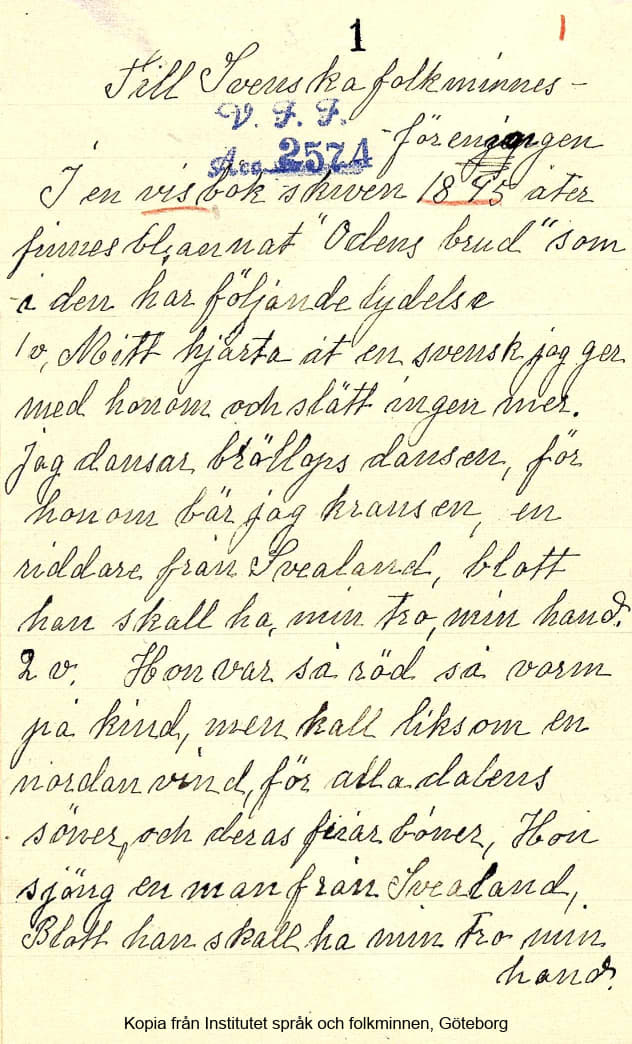 1
1
Till Svenska folkminnes-
V. F. F.
-föreningen
Acc 2574
I en visbok skriven 1845 åter
finnes bl. annat "Odens brud" som
i den har följande lydelse
1 v, Mitt hjärta åt en svensk jag ger
med honom och slätt ingen mer.
Jag dansar bröllops dansen, för
honom bär jag kransen, en
riddare från Svealand, blott
han skall ha, min tro, min hand.
2 v. Hon var så röd så varm
på kind, men kall liksom en
nordanvind, för alla dalens
söner, och deras friar böner, Hon
sjöng en man från Svealand,
Blott han skall ha min tro min
hand.
Kopia från Institutet språk och folkminnen, Göteborg